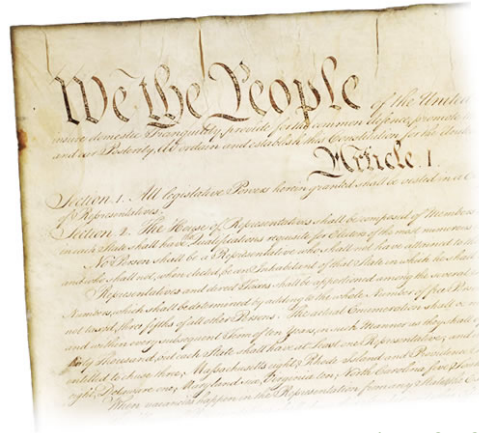 We the People of the United
insure domestic Tranquility, provide for the common defence, promote
and our Posterity, do ordain and establish this Constitution for the United
Article. I.
Section. 1. All legislative Powers herein granted shall be vested in a
of Representatives.
Section. 2. The House of Representatives shall be composed of Members
in each State shall have Qualifications requisite for Electors of the most numerous
No Person shall be a Representative who shall not have attained to the
and who shall not, when elected, be an Inhabitant of that State in which he shall
Representatives and direct Taxes shall be apportioned among the several
Numbers, which shall be determined by adding to the whole Number of free
not taxed, three fifths of all other Persons. The actual Enumeration shall
and within every subsequent Term of ten Years, in such Manner as they shall
thirty Thousand, but each State shall have at Least one Representative; and
entitled to chuse three, Massachusetts eight, Rhode Island and Providence
eight, Delaware one, Maryland six, Virginia ten, North Carolina five,
When vacancies happen in the Representation from any State, the